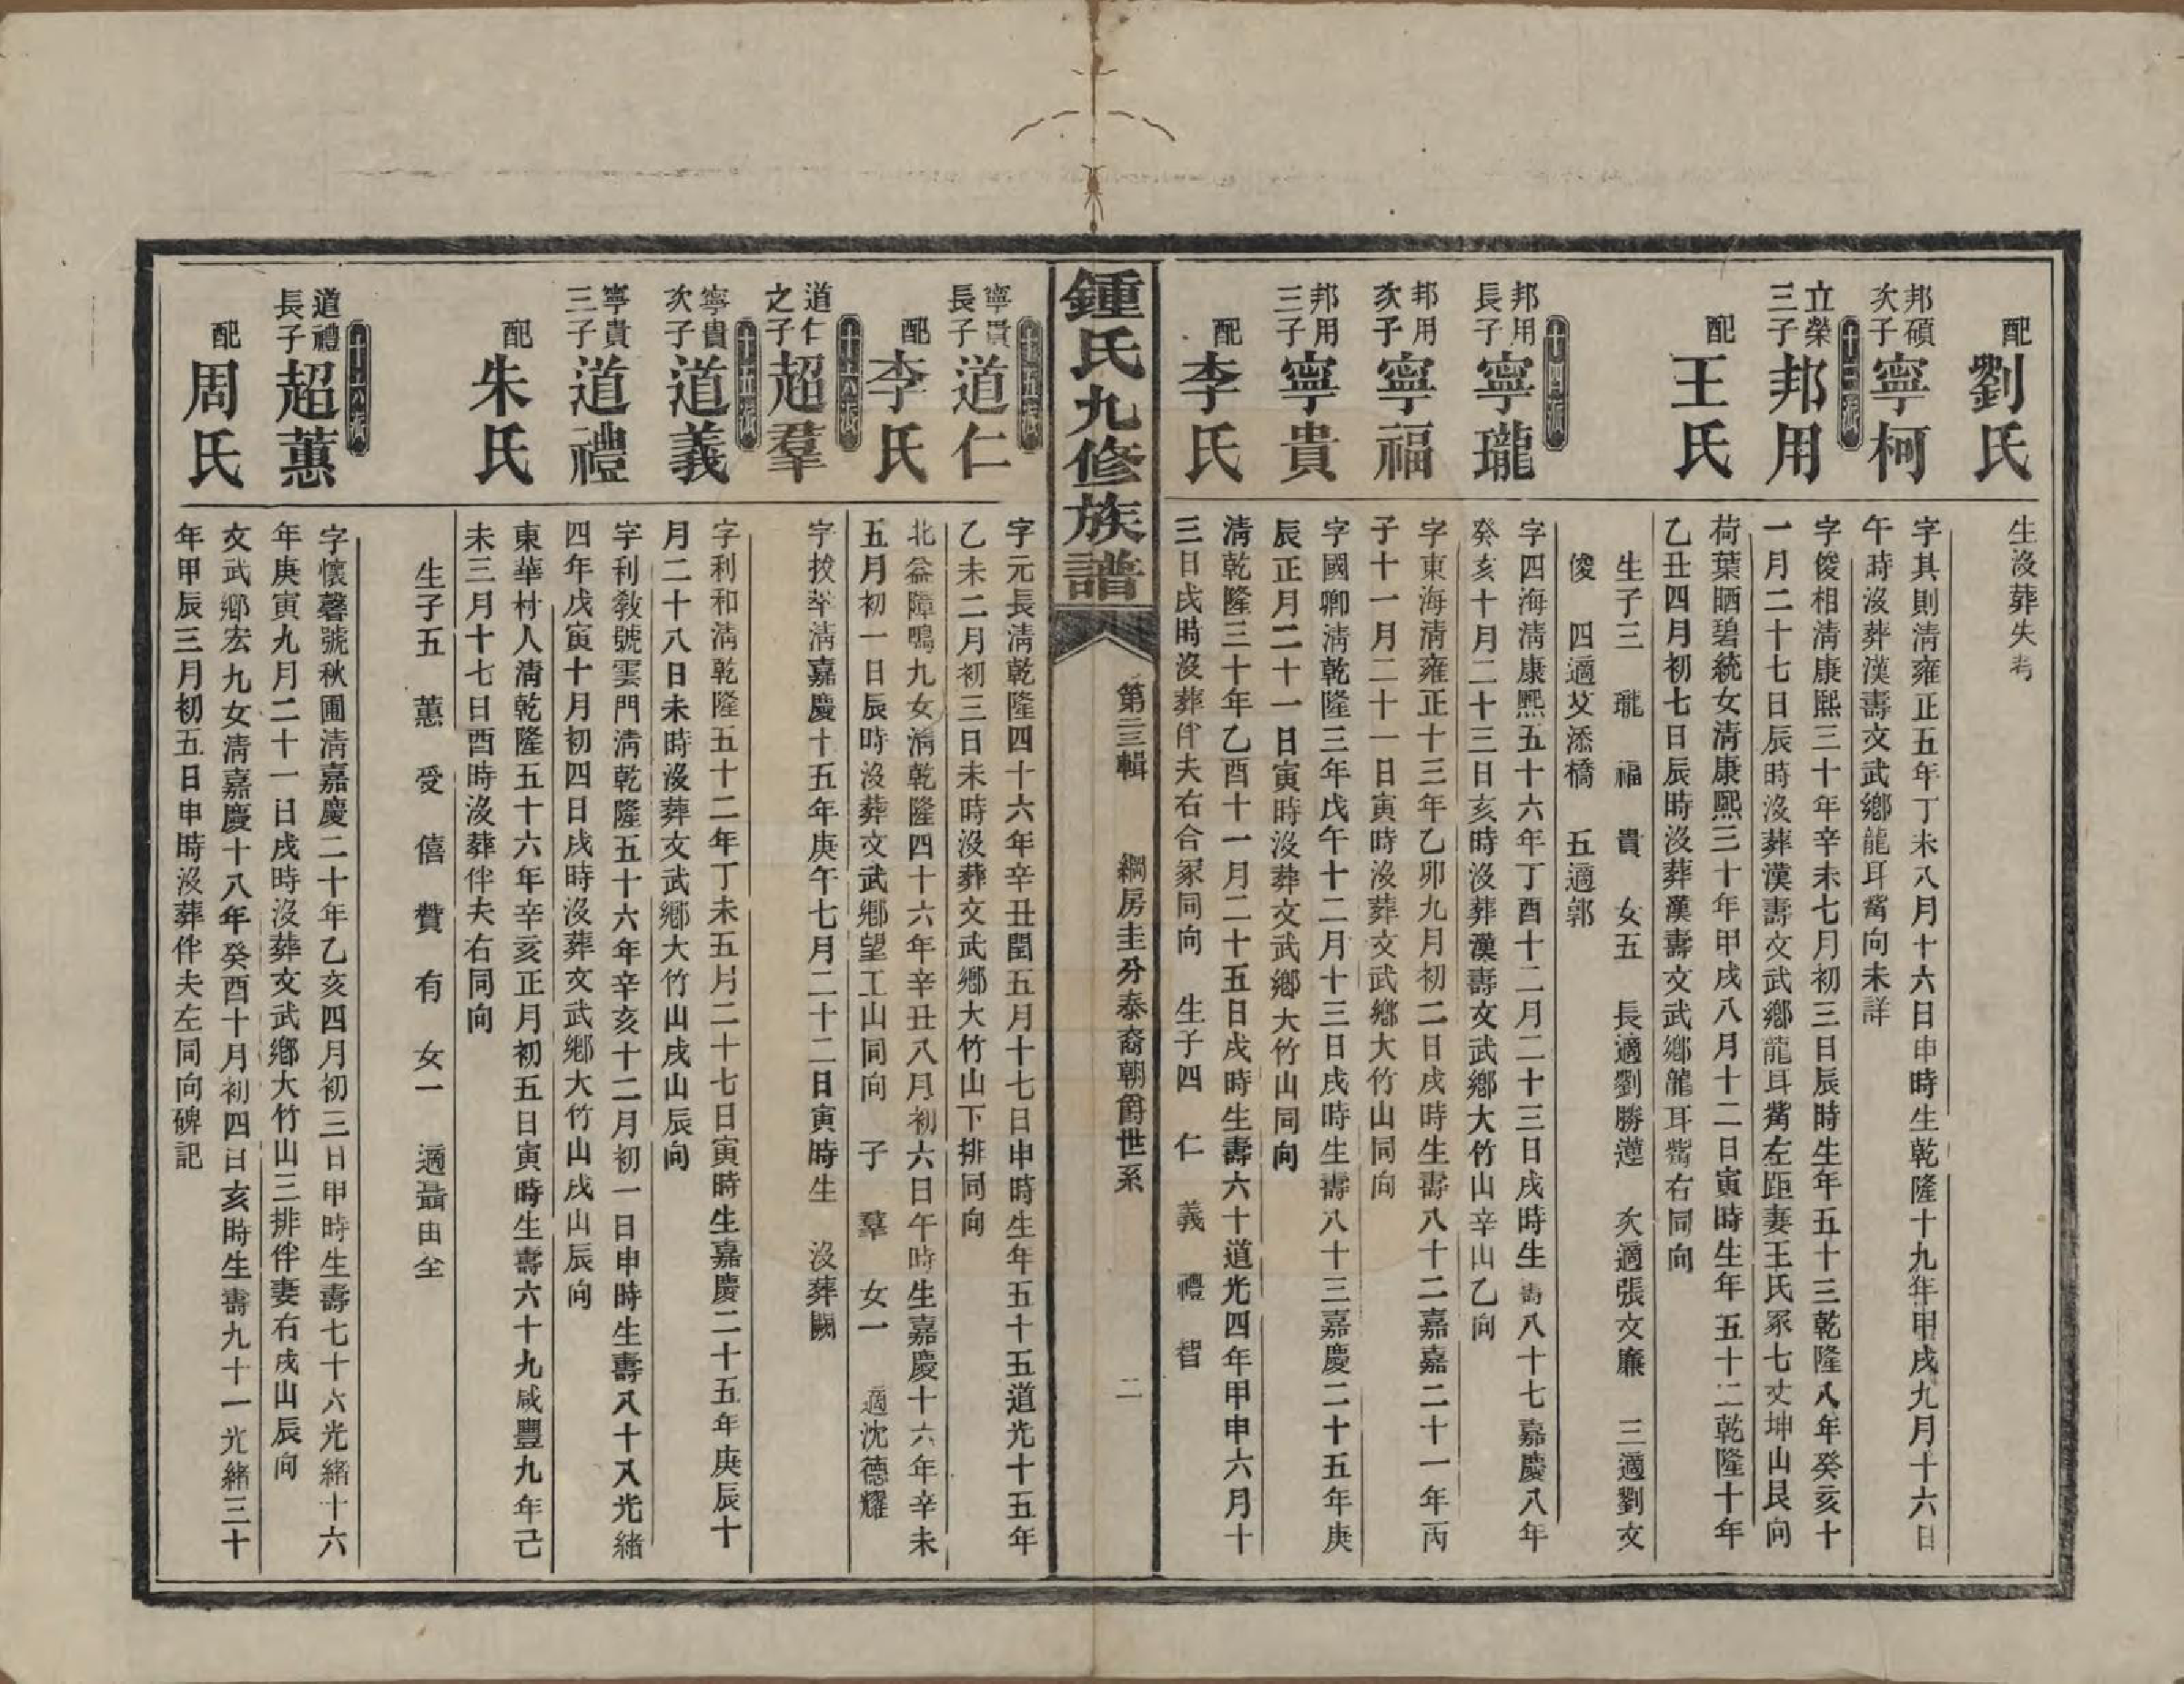 配劉氏
生沒葬失考
邦碩次子寧柯
字其則淸雍正五年丁未八月十六日申時生乾隆十九年甲戌九月十六日
午時沒葬漢壽文武鄉龍耳觜向未詳
十三派
立榮三子邦用
字俊相淸康熙三十年辛未七月初三日辰時生年五十三乾隆八年癸亥十
一月二十七日辰時沒葬漢壽文武鄉龍耳觜左距妻王氏冢七丈坤山艮向
配王氏
荷葉晒碧統女淸康熙三十年甲戌八月十二日寅時生年五十二乾隆十年
乙丑四月初七日辰時沒葬漢壽文武鄉龍耳觜右同向
生子三 瓏 福 貴 女五 長適劉勝蓮 次適張文廉 三適劉文
俊 四適艾添橋 五適郭
十四派
邦用長子寧瓏
字四海淸康熙五十六年丁酉十二月二十三日戌時生壽八十七嘉慶八年
癸亥十月二十三日亥時沒葬漢壽文武鄉大竹山辛山乙向
邦用次子寧福
字東海淸雍正十三年乙卯九月初二日戌時生壽八十二嘉嘉二十一年丙
子十一月二十一日寅時沒葬文武鄉大竹山同向
邦用三子寧貴
字國卿淸乾隆三年戊午十二月十三日戌時生壽八十三嘉慶二十五年庚
辰正月二十一日寅時沒葬文武鄉大竹山同向
配李氏
淸乾隆三十年乙酉十一月二十五日戌時生壽六十道光四年甲申六月十
三日戌時沒葬伴夫右合冢同向 生子四 仁 義 禮 智
鍾氏九修族譜
第三輯 綱房圭分泰裔朝爵世系 二
十五派
寧貴長子道仁
字元長淸乾隆四十六年辛丑閏五月十七日申時生年五十五道光十五年
乙未二月初三日未時沒葬文武鄉大竹山下排同向
配李氏
北益障鳴九女淸乾隆四十六年辛丑八月初六日午時生嘉慶十六年辛未
五月初一日辰時沒葬文武鄉望工山同向 子 羣 女一 適沈德耀
十六派
道仁之子超羣
字拔萃淸嘉慶十五年庚午七月二十二日寅時生 沒葬闕
十五派
寧貴次子道義
字利和淸乾隆五十二年丁未五月二十七日寅時生嘉慶二十五年庚辰十
月二十八日未時沒葬文武鄉大竹山戌山辰向
寧貴三子道禮
字利敎號雲門淸乾隆五十六年辛亥十二月初一日申時生壽八十八光緖
四年戊寅十月初四日戌時沒葬文武鄉大竹山戌山辰向
配朱氏
東華村人淸乾隆五十六年辛亥正月初五日寅時生壽六十九咸豐九年己
未三月十七日酉時沒葬伴夫右同向
生子五 蕙 受 僖 贊 有 女一 適聶由全
十六派
道禮長子超蕙
字懷馨號秋圃淸嘉慶二十年乙亥四月初三日甲時生壽七十六光緖十六
年庚寅九月二十一日戌時沒葬文武鄉大竹山三排伴妻右戌山辰向
配周氏
文武鄉宏九女淸嘉慶十八年癸酉十月初四日亥時生壽九十一光緖三十
年甲辰三月初五日申時沒葬伴夫左同向碑記